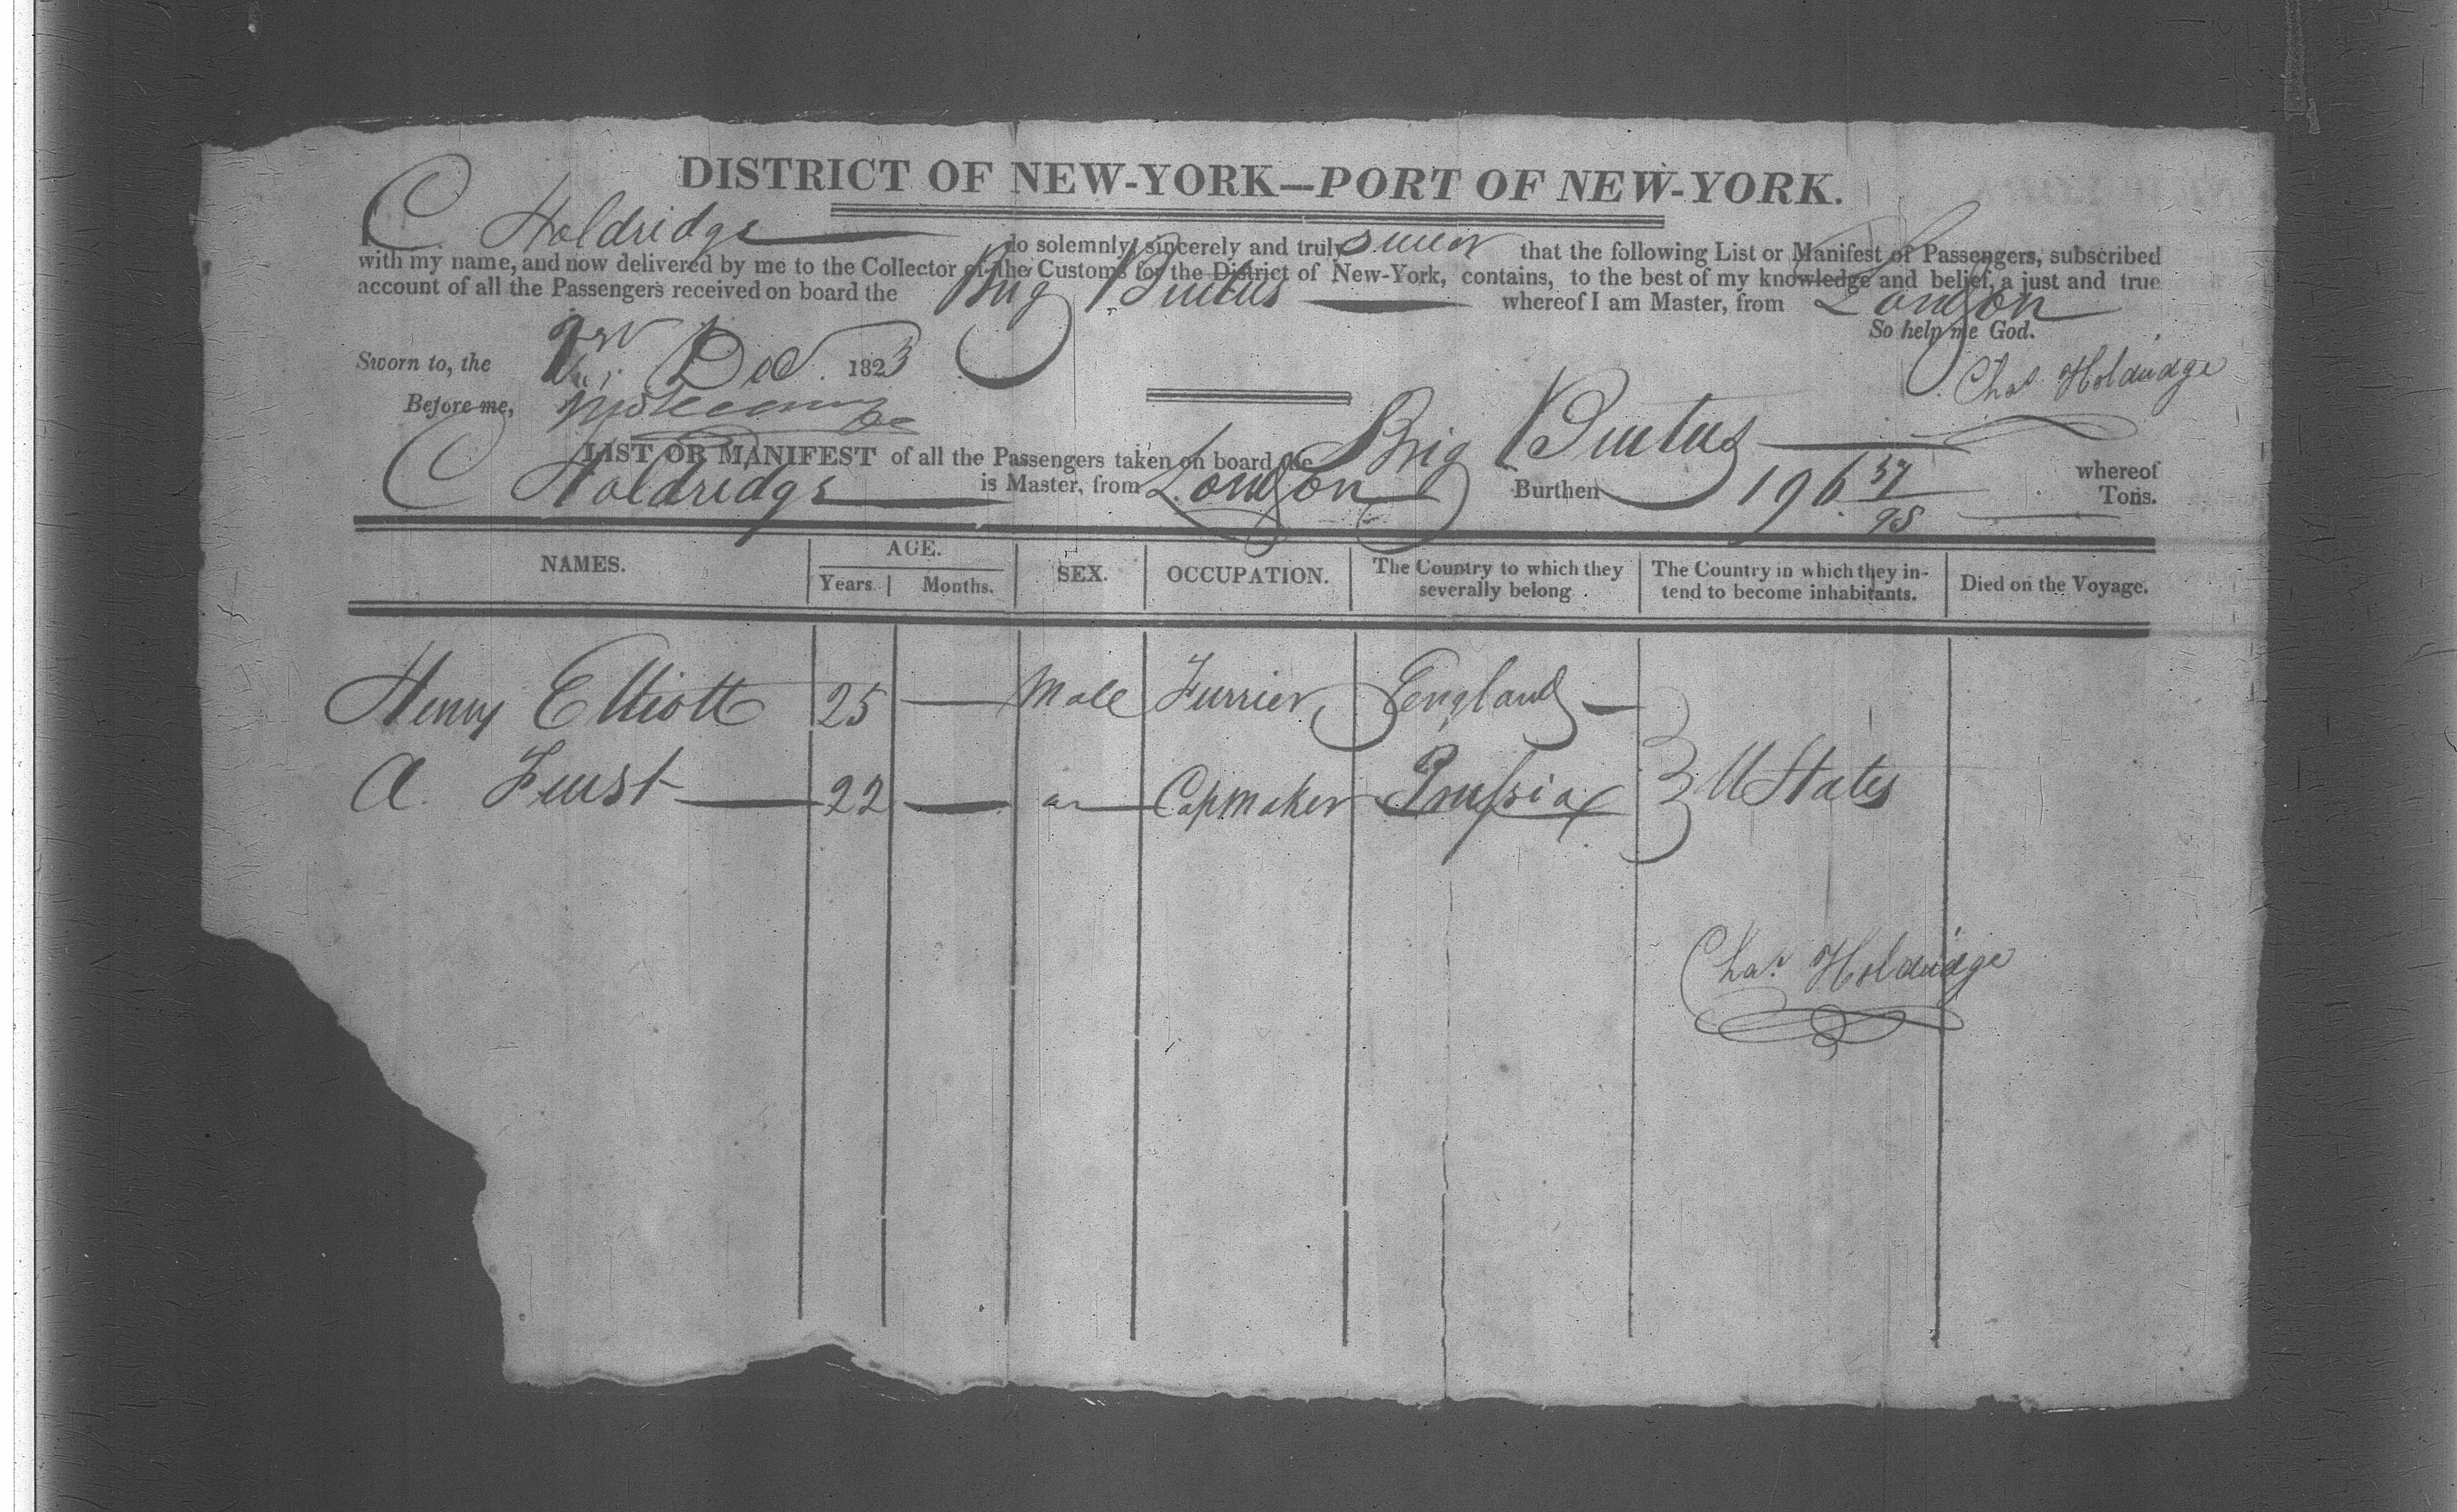 DISTRICT OF NEW-YORK—PORT OF NEW-YORK.
I, C Holdridge do solemnly, sincerely and truly swear that the following List or Manifest of Passengers, subscribed
with my name, and now delivered by me to the Collector of the Customs for the District of New-York, contains, to the best of my knowledge and belief, a just and true
account of all the Passengers received on board the Brig Brutus whereof I am Master, from London
So help me God.
Sworn to, the Dec. 1823
Chas Holdridge
Before me,
LIST OR MANIFEST of all the Passengers taken on board the Brig Brutus whereof
C Holdridge is Master, from London Burthen 196 37/95 Tons.
NAMES. AGE. SEX. OCCUPATION. The Country to which they severally belong The Country in which they in-tend to become inhabitants. Died on the Voyage.
Years Months.
Henry Elliott 25 — Male Furrier England —
A. Furst — 22 — Capmaker Prussia U States
Chas Holdridge